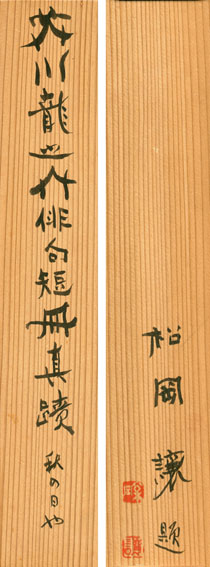 芥川龍之介俳句短冊真蹟 秋の日や
松岡譲題